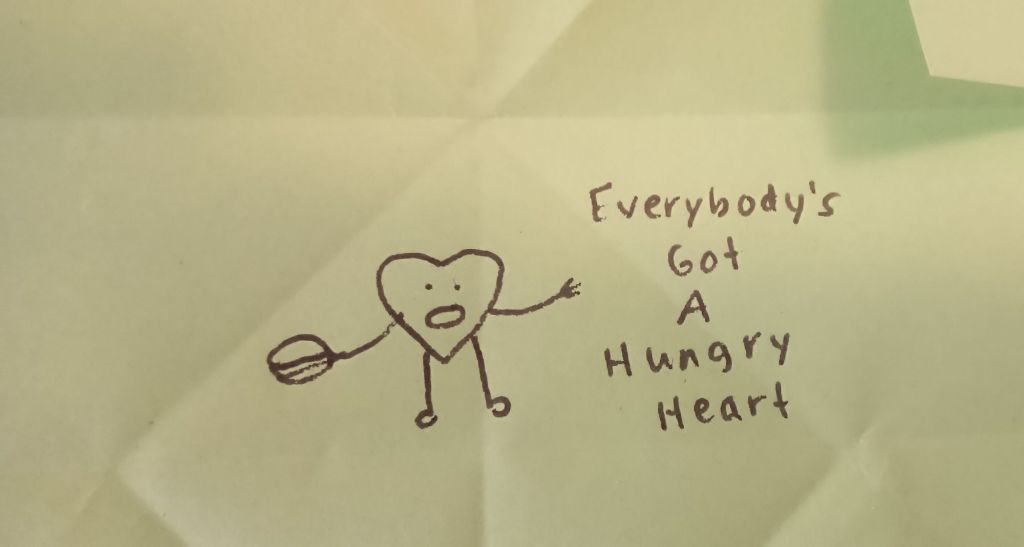 Everybody's
Got
A
Hungry
Heart